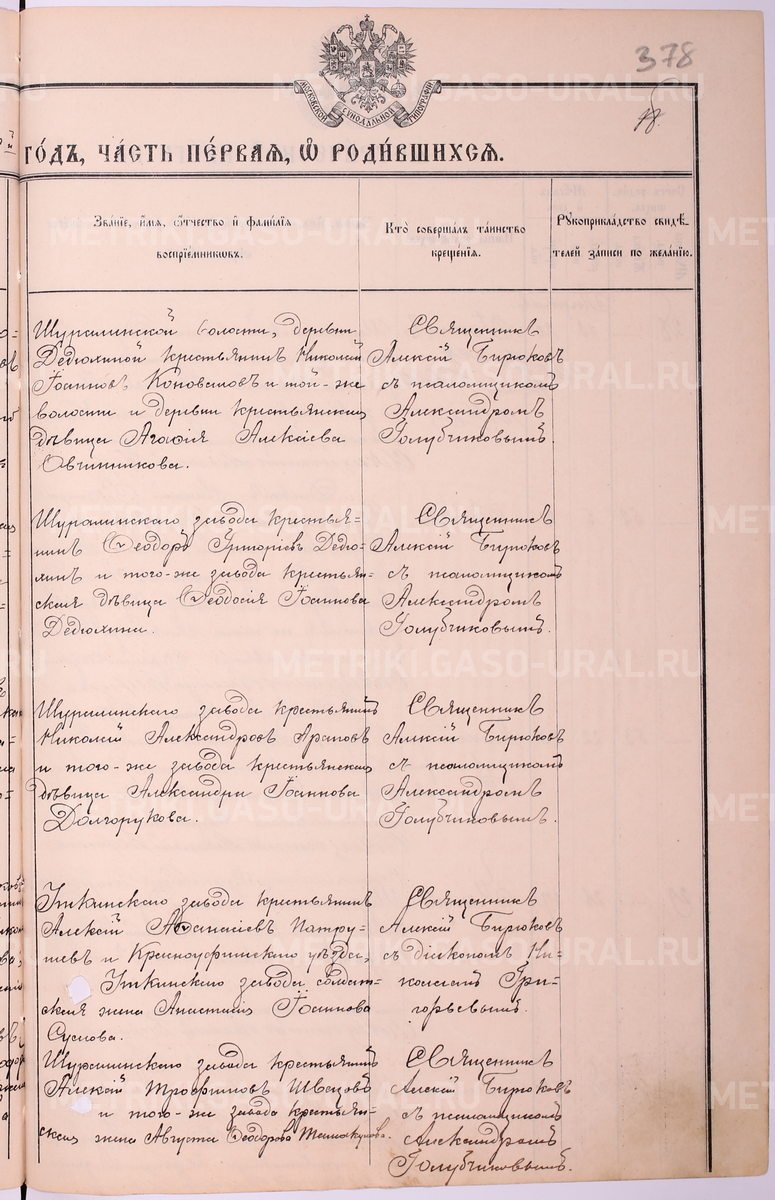 378
МОСКОВСКОЙ СѴНОДАЛЬНОЙ ТИПОГРАФІИ
го́дъ, ча́сть пе́рваѧ, ѡ҆ роди́вшихсѧ.
Зва́нїе, и҆́мѧ, ѻ҆́тчество и҆ фами́лїѧ
воспрїе́мникѡвъ.
Кто̀ соверша́лъ та́инство
креще́нїѧ.
Рꙋкоприкла́дство свидѣ́-
телей за́писи по жела́нїю.
Шуралинской волости, деревни
Дедюхиной крестьянинъ Николай
Іоанновъ Коноваловъ и той-же
волости и деревни крестьянская
дѣвица Агаѳія Алексіева
Овчинникова.
Священникъ
Алексій Бирюковъ
съ псаломщикомъ
Александромъ
Голубчиковымъ.
Шуралинскаго завода крестья=
нинъ Ѳеодоръ Григоріевъ Дедю-
хинъ и того-же завода крестьян-
ская дѣвица Ѳеодосія Іоаннова
Дедюхина.
Священникъ
Алексій Бирюковъ
съ псаломщикомъ
Александромъ
Голубчиковымъ.
Шуралинскаго завода крестьянинъ
Николай Александровъ Араповъ
и того-же завода крестьянская
дѣвица Александра Іоаннова
Долгорукова.
Священникъ
Алексій Бирюковъ
съ псаломщикомъ
Александромъ
Голубчиковымъ.
Уткинскаго завода крестьянинъ
Алексій Аѳанасіевъ Патру-
шевъ и Красноуфимскаго уѣзда,
Уткинскаго завода солдат-
ская жена Анастасія Іоаннова
Суслова.
Священникъ
Алексій Бирюковъ
съ діакономъ Ни-
колаемъ Гри-
горьевымъ.
Шуралинскаго завода крестьянинъ
Алексій Трофимовъ Швецовъ
и того-же завода крестьян-
ская жена Августа Ѳеодорова
Священникъ
Алексій Бирюковъ
съ псаломщикомъ
Александромъ
Голубчиковымъ.
METRIKI.GASO-URAL.RU